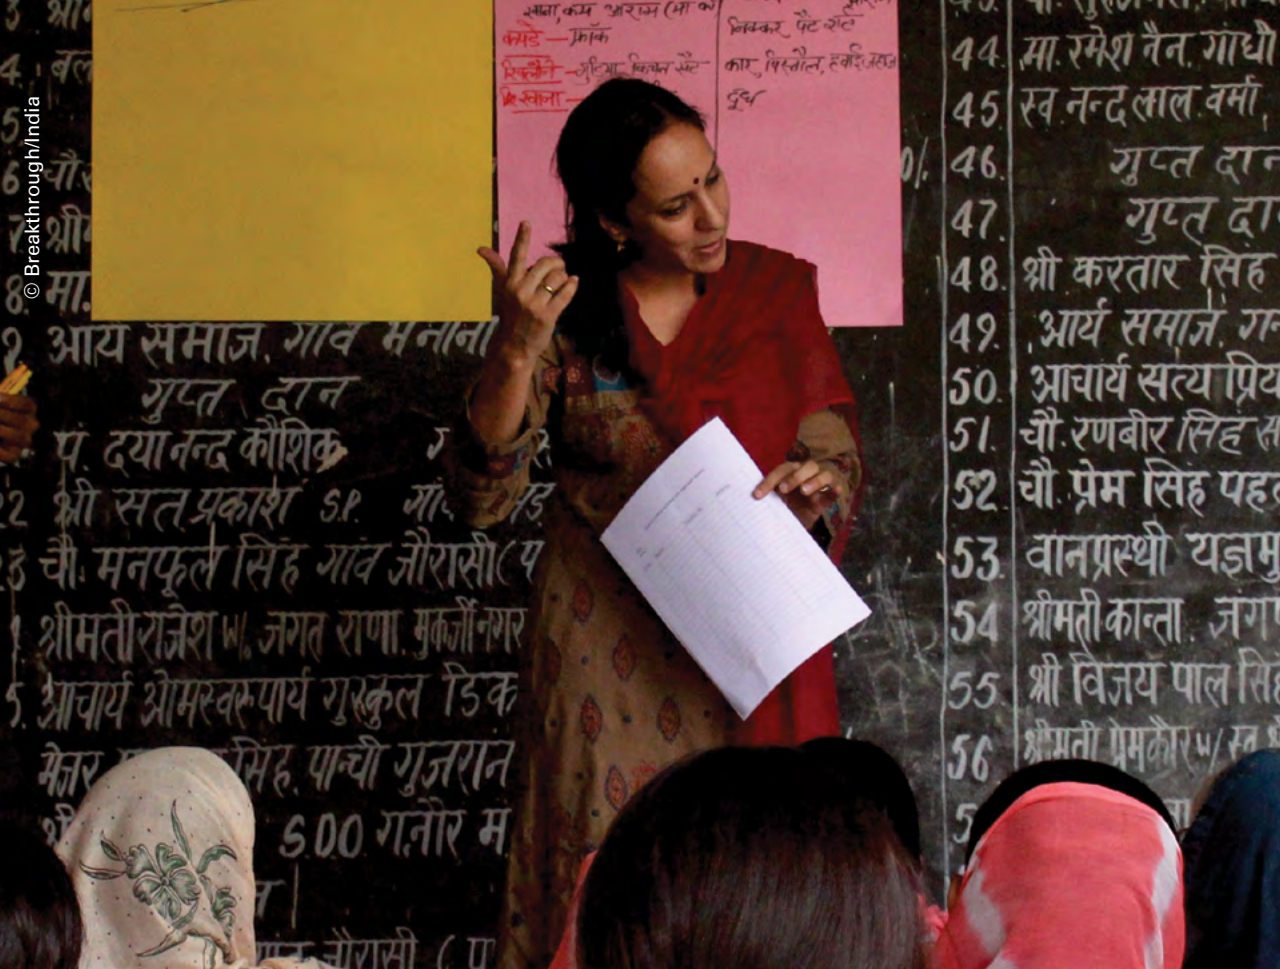 © Breakthrough/India
कपडे — फ्रॉक
खिलौने — गुडिया, किचन सैट
खाना —
निक्कर पैंट शर्ट
कार, पिस्तौल, हवाई जहाज
दूध
4.
5
6
7 श्री
8. मा.
9 आर्य समाज, गांव मनाना
गुप्त दान
पं. दयानन्द कौशिक
22 श्री सतप्रकाश S.P.
23 चौ. मनफूल सिंह गांव जौरासी (प
श्रीमती राजेश w/. जगत राणा. मुकर्जी नगर
5. आचार्य ओमस्वरूपार्य गुरुकुल डिक
मेजर सिंह. पान्ची गुजरान
SDO गन्नौर म
जौरासी ( प
44. मा. रमेश नैन, गांधी
45. स्व. नन्दलाल. वर्मा,
46. गुप्त दान
47. गुप्त दा
48. श्री करतार सिंह
49. आर्य समाज, गन
50. आचार्य सत्य प्रिय
51. चौ. रणबीर सिंह स
52. चौ. प्रेम सिंह पहल
53. वानप्रस्थी यज्ञमु
54 श्रीमती कान्ता. जंग
55 श्री विजय पाल सिंह
56 श्रीमती प्रेमकौर w/ स्व. श्र
5